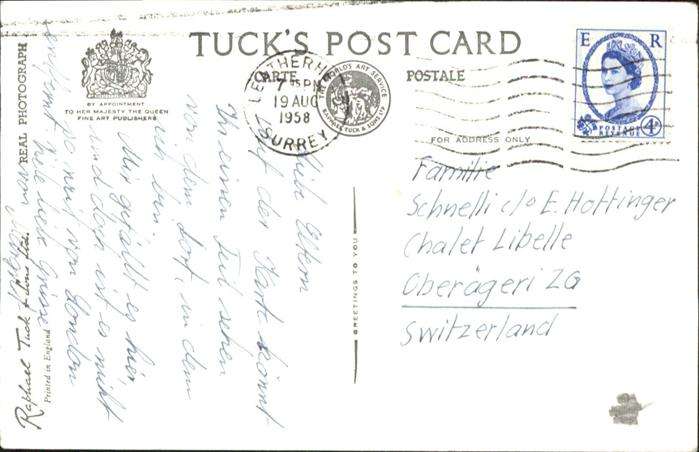 TUCK'S POST CARD
CARTE POSTALE
BY APPOINTMENT
TO HER MAJESTY THE QUEEN
FINE ART PUBLISHERS
LEATHERH
7 15PM
19 AUG
1958
SURREY
THE WORLD'S ART SERVICE
RAPHAEL TUCK & SONS LTD
E R
POSTAGE
REVENUE
4D
FOR ADDRESS ONLY
Familie
Schnelli c/o E. Hottinger
Chalet Libelle
Oberägeri ZG
Switzerland
GREETINGS TO YOU
Liebe Eltern
Auf der Karte könnt
Ihr einen Teil sehen
von dem Dorf, in dem
ich bin.
Mir gefällt es hier,
und doch ist es nicht
so weit von London
entfernt. Viele liebe Grüsse
von
REAL PHOTOGRAPH
Raphael Tuck & Sons Ltd.
Printed in England